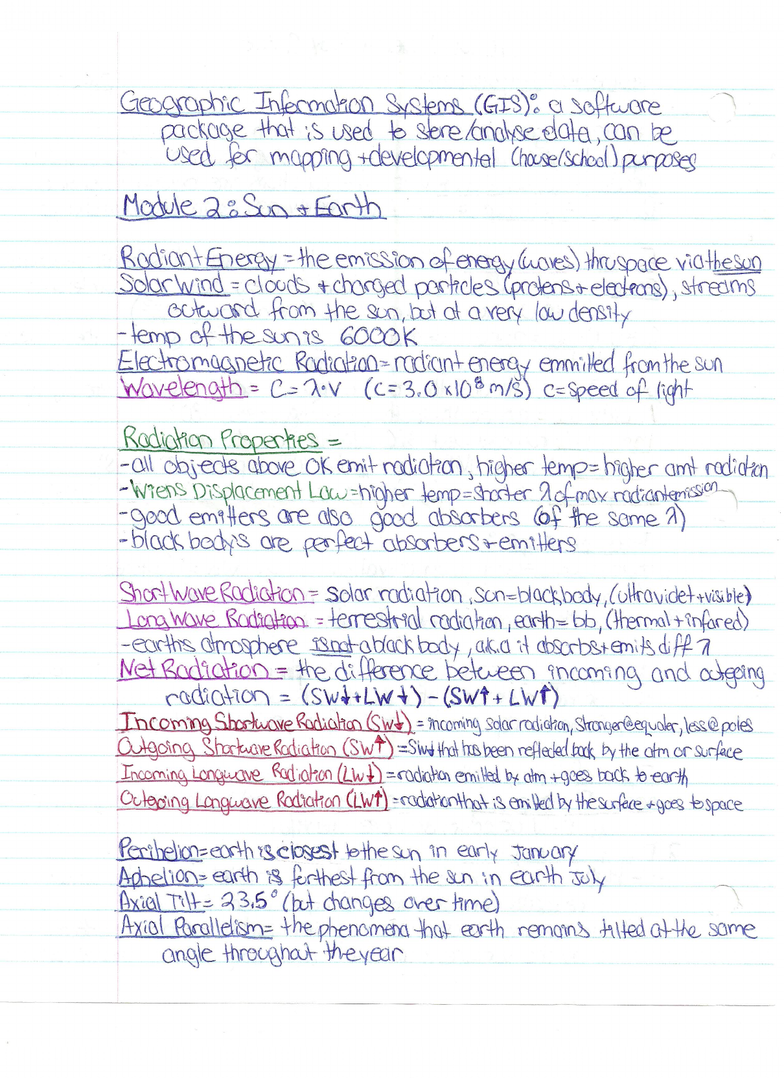 Geographic Information Systems (GIS): a software
package that is used to store/analyse data, can be
used for mapping + developmental (house/school) purposes
Module 2: Sun + Earth
Radiant Energy = the emission of energy (waves) thru space via the sun
Solar Wind = clouds + charged particles (protens + electrons), streams
outward from the sun, but at a very low density
- temp of the sun is 6000K
Electromagnetic Radiation = radiant energy emmitted from the sun
Wavelength = C = λ·v (c = 3.0 x10⁸ m/s) c = speed of light
Radiation Properties =
- all objects above 0K emit radiation, higher temp = higher amt radiation
- Wiens Displacement Law = higher temp = shorter λ of max radiant emission
- good emitters are also good absorbers (of the same λ)
- black body's are perfect absorbers + emitters
Short Wave Radiation = solar radiation, sun = blackbody, (ultraviolet + visible)
Long Wave Radiation = terrestrial radiation, earth = bb, (thermal + infared)
- earths atmosphere is not a black body, a.k.a it absorbs + emits diff λ
Net Radiation = the difference between incoming and outgoing
radiation = (SW↓ + LW↓) - (SW↑ + LW↑)
Incoming Shortwave Radiation (SW↓) = incoming solar radiation, Stronger @ equator, less @ poles
Outgoing Shortwave Radiation (SW↑) = SW↓ that has been reflected back by the atm or surface
Incoming Longwave Radiation (LW↓) = radiation emitted by atm + goes back to earth
Outgoing Longwave Radiation (LW↑) = radiation that is emitted by the surface + goes to space
Perihelion = earth is closest to the sun in early January
Aphelion = earth is furthest from the sun in earth July
Axial Tilt = 23.5° (but changes over time)
Axial Parallelism = the phenomena that earth remains tilted at the same
angle throughout the year